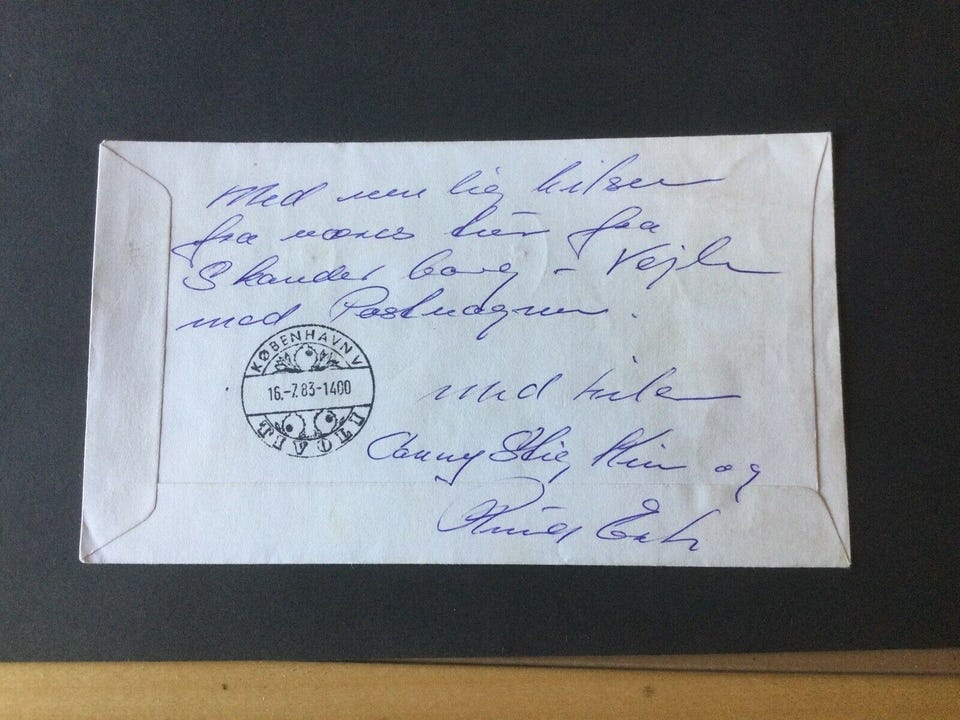 Med venlig hilsen
fra vores tur fra
Skanderborg - Vejle
med Postvognen.
KØBENHAVN V
16.-7.83-1400
TIVOLI
med hilsen
Conny Stig Kim og